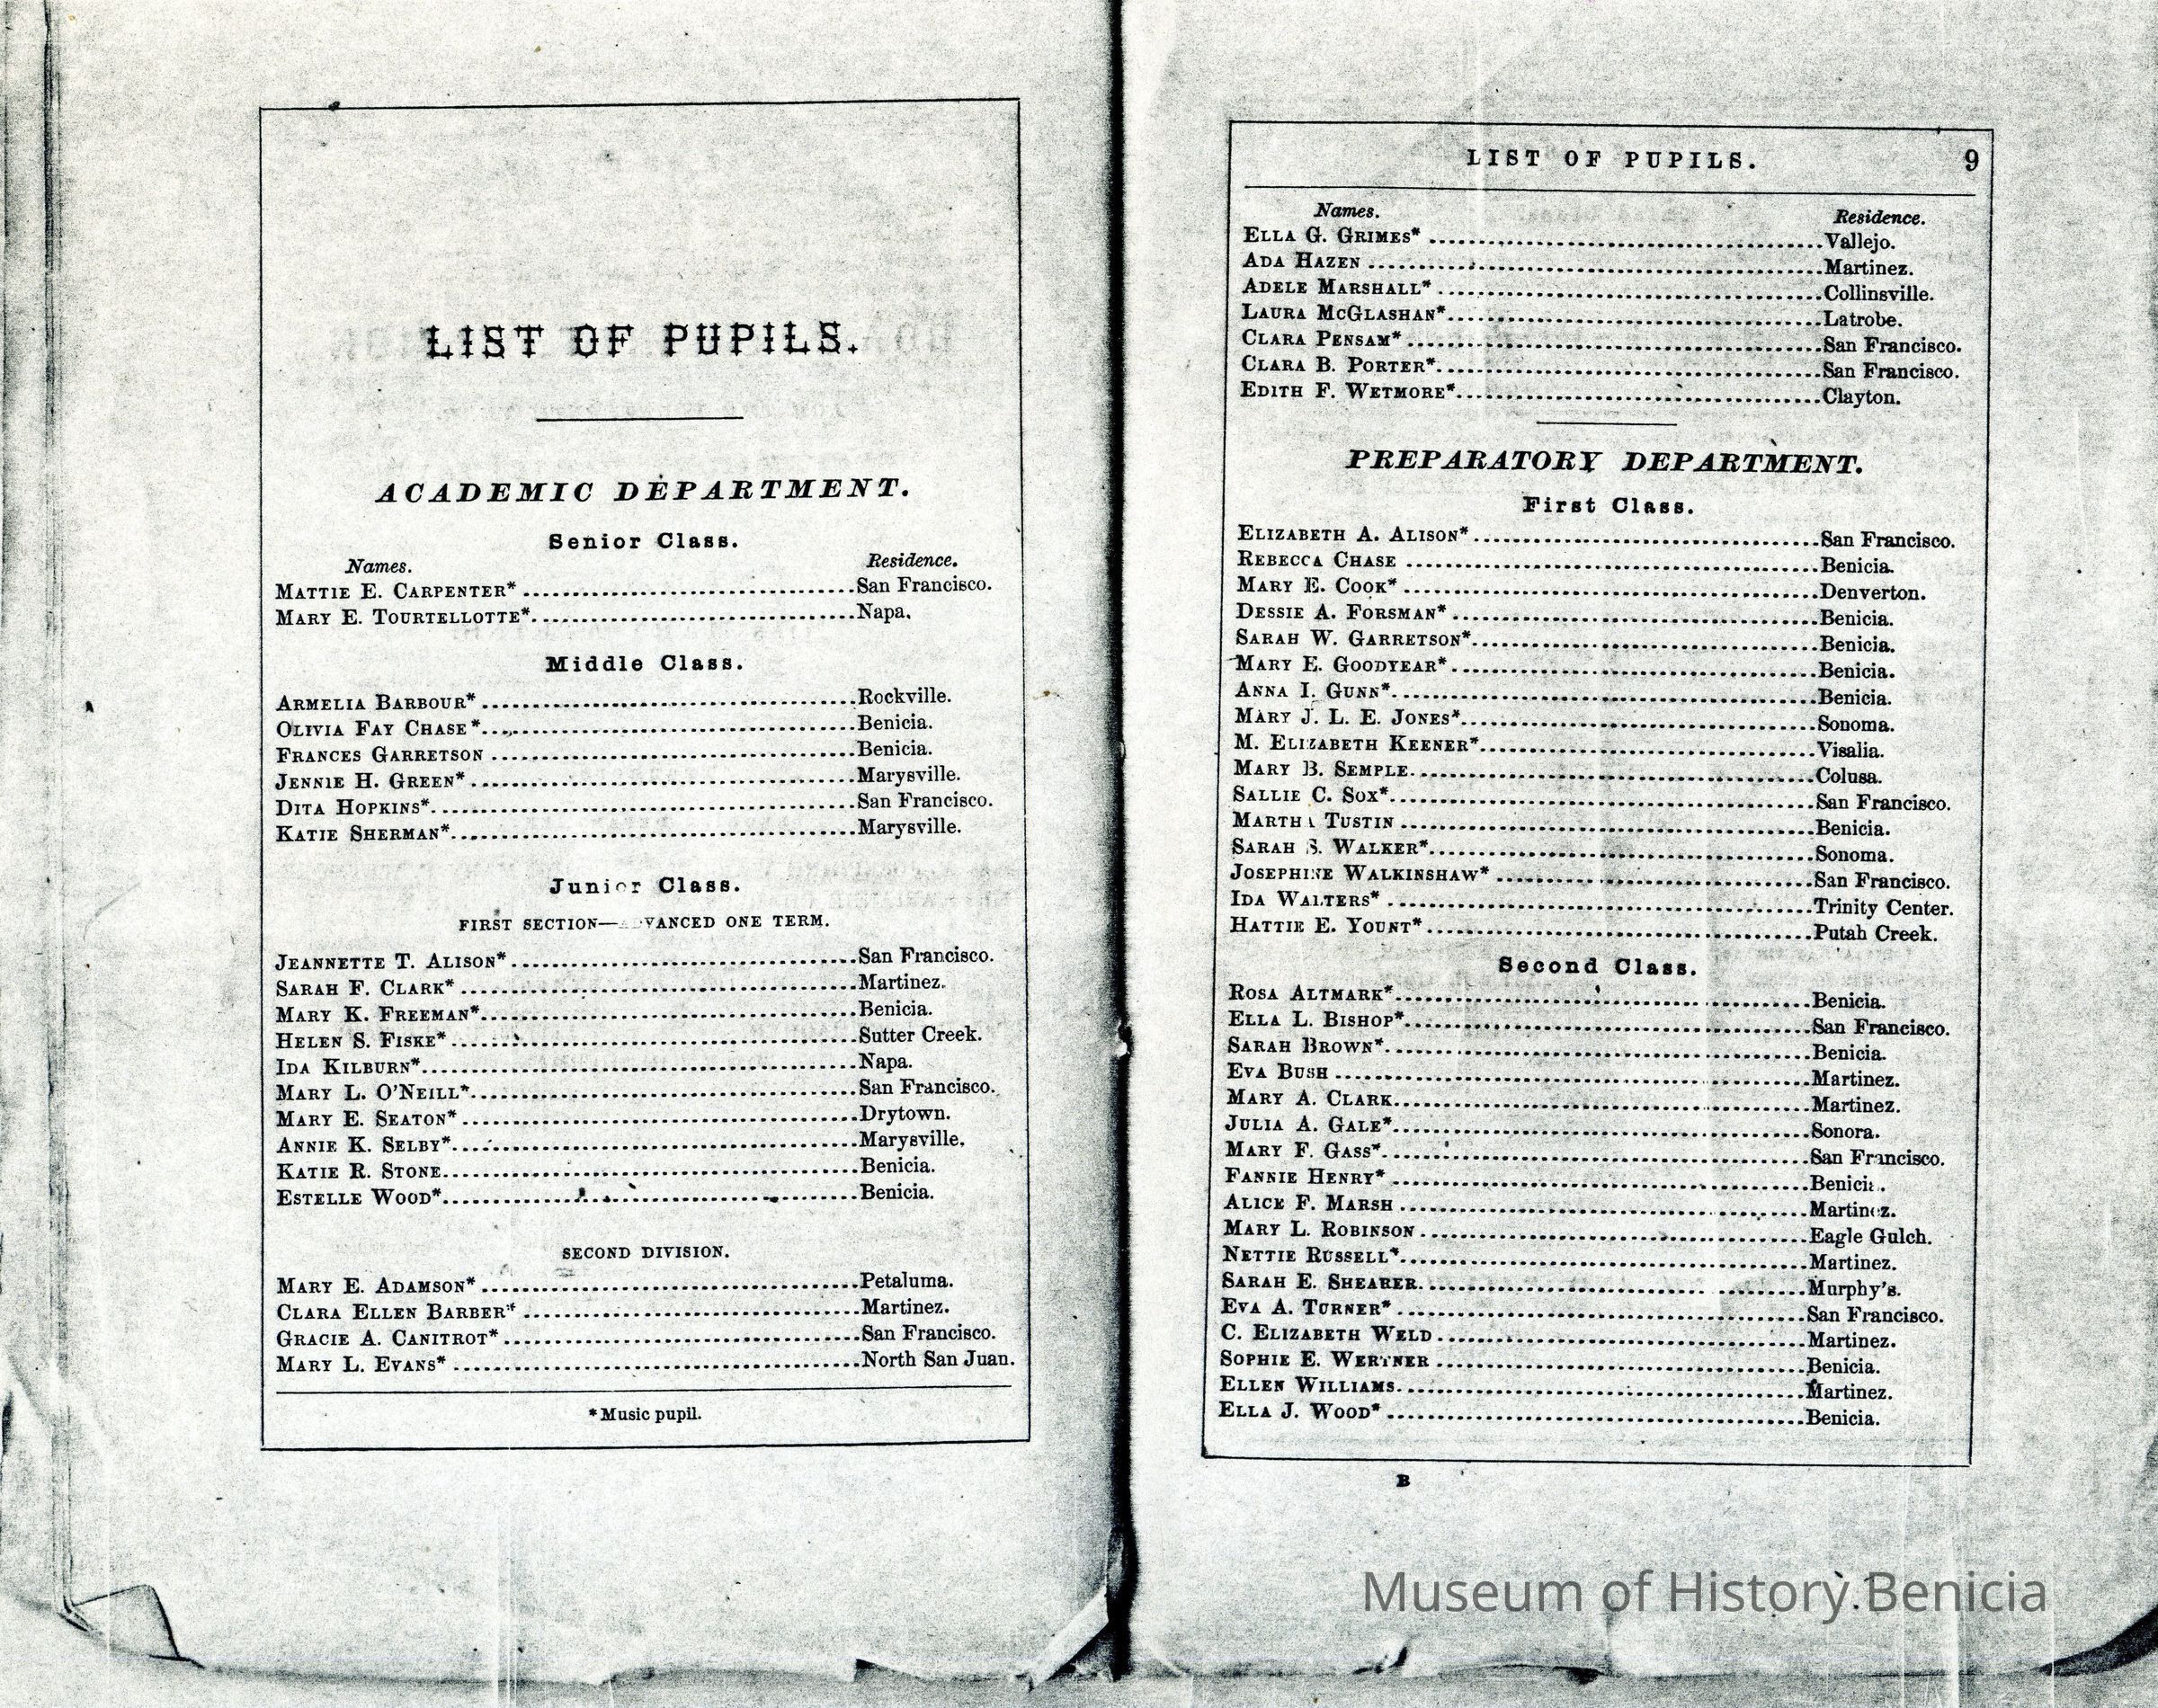 LIST OF PUPILS.
ACADEMIC DEPARTMENT.
Senior Class.
Names. Residence.
MATTIE E. CARPENTER*........................................San Francisco.
MARY E. TOURTELLOTTE*........................................Napa.
Middle Class.
ARMELIA BARBOUR*........................................Rockville.
OLIVIA FAY CHASE*........................................Benicia.
FRANCES GARRETSON........................................Benicia.
JENNIE H. GREEN*........................................Marysville.
DITA HOPKINS*........................................San Francisco.
KATIE SHERMAN*........................................Marysville.
Junior Class.
FIRST SECTION—ADVANCED ONE TERM.
JEANNETTE T. ALISON*........................................San Francisco.
SARAH F. CLARK*........................................Martinez.
MARY K. FREEMAN*........................................Benicia.
HELEN S. FISKE*........................................Sutter Creek.
IDA KILBURN*........................................Napa.
MARY L. O'NEILL*........................................San Francisco.
MARY E. SEATON*........................................Drytown.
ANNIE K. SELBY*........................................Marysville.
KATIE R. STONE........................................Benicia.
ESTELLE WOOD*........................................Benicia.
SECOND DIVISION.
MARY E. ADAMSON*........................................Petaluma.
CLARA ELLEN BARBER*........................................Martinez.
GRACIE A. CANITROT*........................................San Francisco.
MARY L. EVANS*........................................North San Juan.
* Music pupil.
LIST OF PUPILS. 9
Names. Residence.
ELLA G. GRIMES*........................................Vallejo.
ADA HAZEN........................................Martinez.
ADELE MARSHALL*........................................Collinsville.
LAURA MCGLASHAN*........................................Latrobe.
CLARA PENSAM*........................................San Francisco.
CLARA B. PORTER*........................................San Francisco.
EDITH F. WETMORE*........................................Clayton.
PREPARATORY DEPARTMENT.
First Class.
ELIZABETH A. ALISON*........................................San Francisco.
REBECCA CHASE........................................Benicia.
MARY E. COOK*........................................Denverton.
DESSIE A. FORSMAN*........................................Benicia.
SARAH W. GARRETSON*........................................Benicia.
MARY E. GOODYEAR*........................................Benicia.
ANNA I. GUNN*........................................Benicia.
MARY J. L. E. JONES*........................................Sonoma.
M. ELIZABETH KEENER*........................................Visalia.
MARY B. SEMPLE........................................Colusa.
SALLIE C. SOX*........................................San Francisco.
MARTHA TUSTIN........................................Benicia.
SARAH S. WALKER*........................................Sonoma.
JOSEPHINE WALKINSHAW*........................................San Francisco.
IDA WALTERS*........................................Trinity Center.
HATTIE E. YOUNT*........................................Putah Creek.
Second Class.
ROSA ALTMARK*........................................Benicia.
ELLA L. BISHOP*........................................San Francisco.
SARAH BROWN*........................................Benicia.
EVA BUSH........................................Martinez.
MARY A. CLARK........................................Martinez.
JULIA A. GALE*........................................Sonora.
MARY F. GASS*........................................San Francisco.
FANNIE HENRY*........................................Benicia.
ALICE F. MARSH........................................Martinez.
MARY L. ROBINSON........................................Eagle Gulch.
NETTIE RUSSELL*........................................Martinez.
SARAH E. SHEARER........................................Murphy's.
EVA A. TURNER*........................................San Francisco.
C. ELIZABETH WELD........................................Martinez.
SOPHIE E. WERTNER........................................Benicia.
ELLEN WILLIAMS........................................Martinez.
ELLA J. WOOD*........................................Benicia.
B
Museum of History Benicia